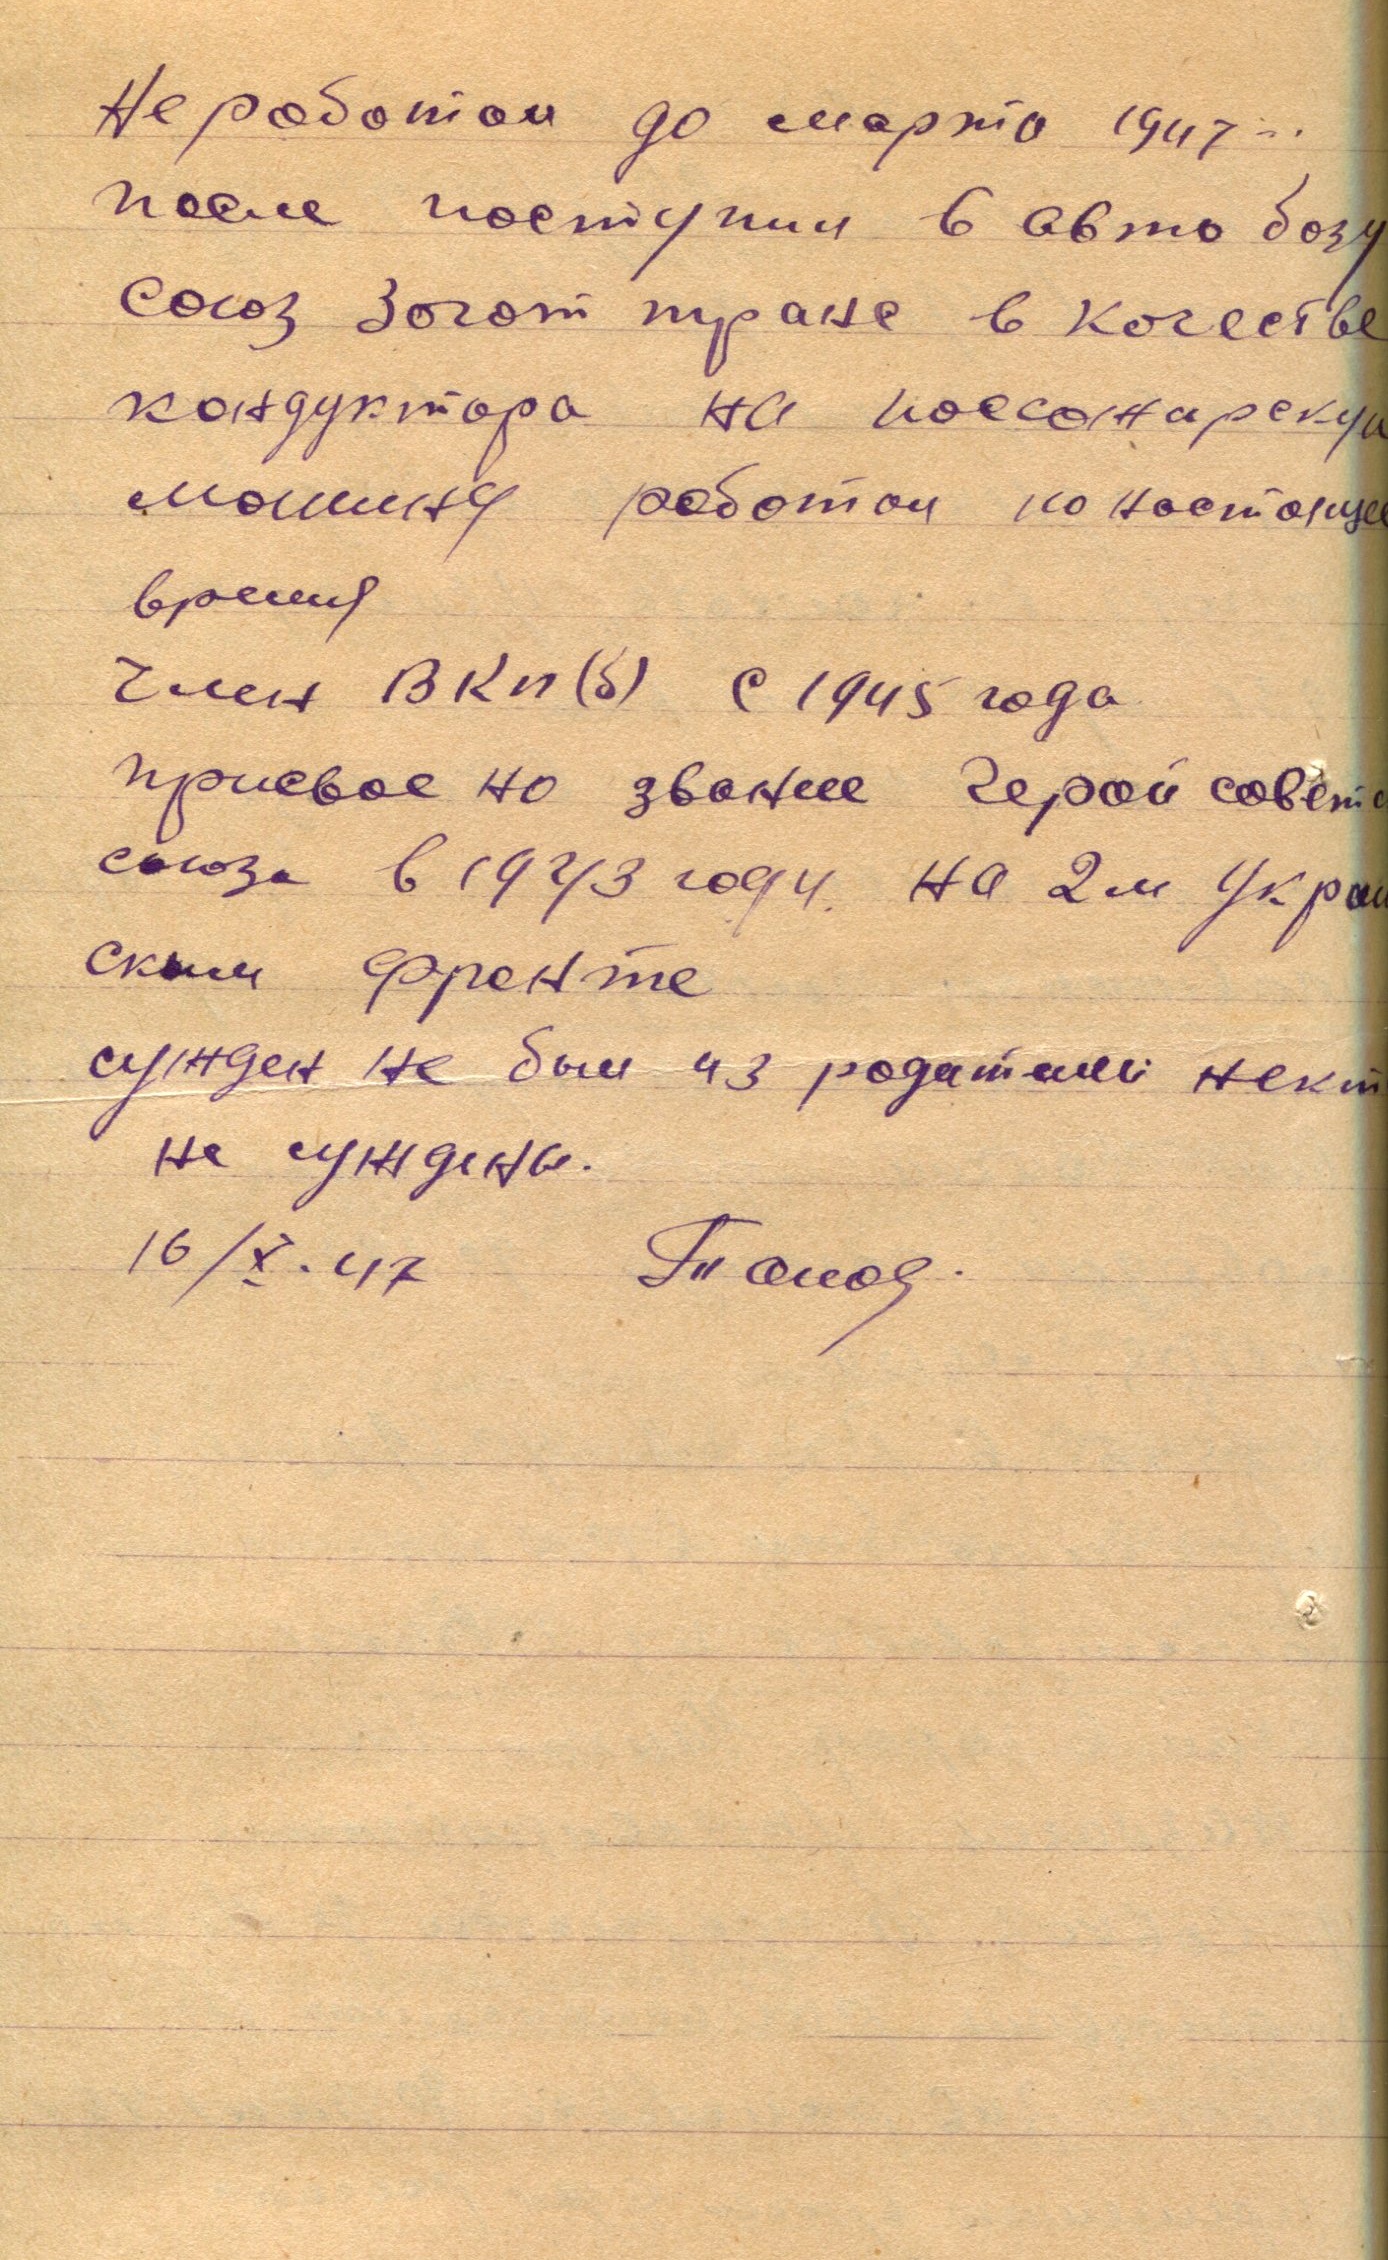 Не работал до марта 1947 г.
после поступил в авто базу
союз Загот транс в качестве
кондуктора на поссонирскую
машину работал по настояще
время
член ВКП(б) с 1945 года
присвоено звание Герой советс
союза в 1943 году. на 2м Украи
ском фронте
сужден не был из родителей никт
не суждены.
16/X.47